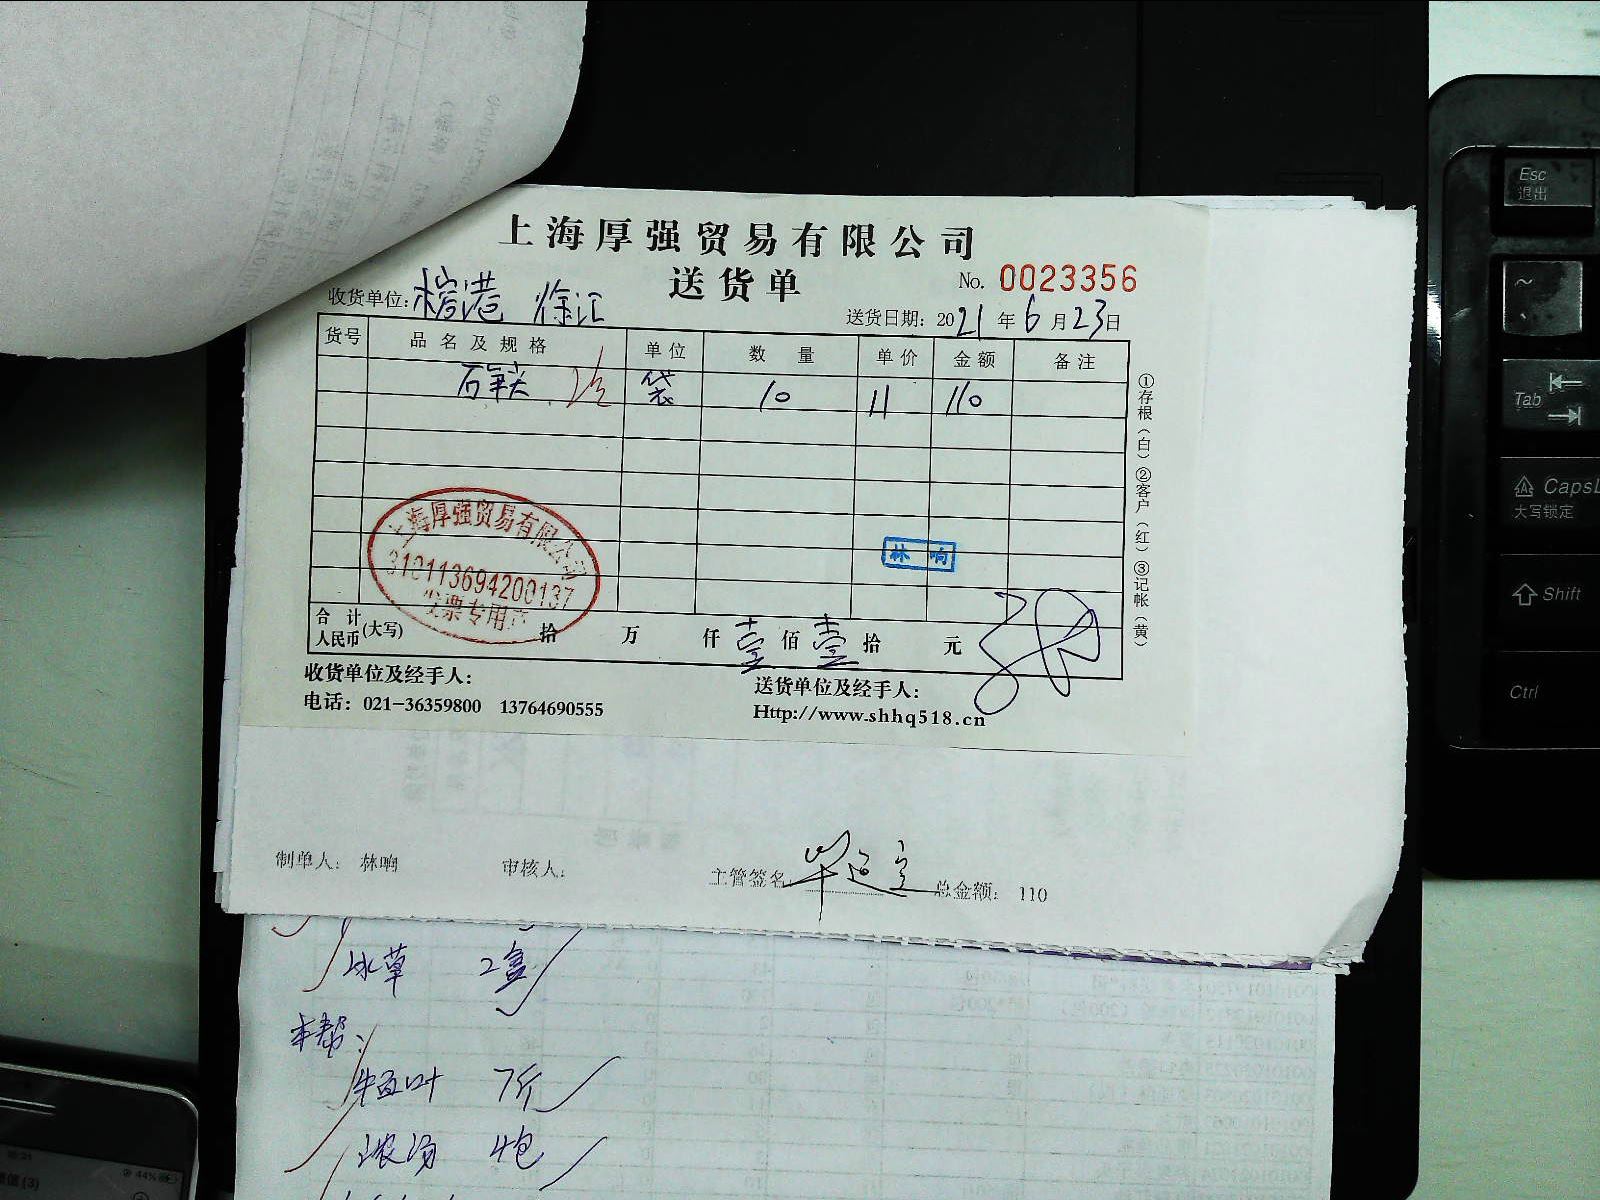 上海厚强贸易有限公司
送货单
No. 0023356
收货单位: 榕港 徐汇
送货日期: 2021年6月23日
货号 品名及规格 单位 数量 单价 金额 备注
袋 10 11 110
①存根(白)②客户(红)③记帐(黄)
林响
上海厚强贸易有限公司
310113694200137
发票专用章
合计人民币(大写) 拾 万 仟 壹 佰 壹 拾 元
收货单位及经手人:
送货单位及经手人:
电话: 021-36359800 13764690555
Http://www.shhq518.cn
制单人: 林响 审核人: 主管签名: 总金额: 110
冰草 2盒
本帮:
7斤
浓汤 4包
Esc
退出
~
Tab
CapsL
大写锁定
Shift
Ctrl
44%